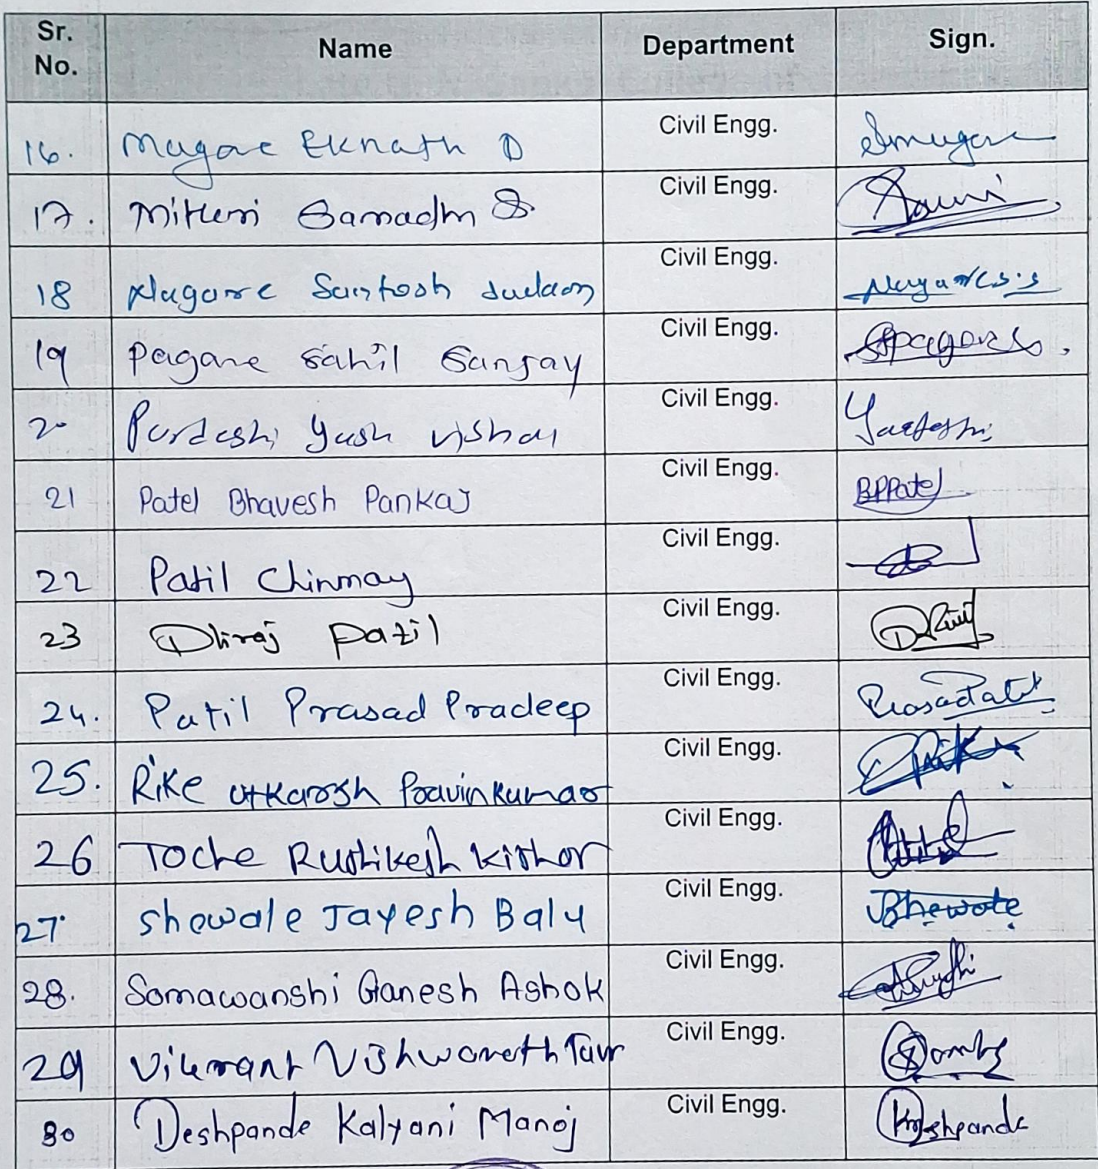 Sr. No. Name Department Sign.
16. Magare Eknath D Civil Engg.
17. Samadhn S. Civil Engg.
18 Nagare Santosh Civil Engg.
19 Pagare Sahil Sanjay Civil Engg. SSPagare
20 Pardeshi Yash Vishal Civil Engg.
21 Patel Bhavesh Pankaj Civil Engg. BPPatel
22 Patil Chinmay Civil Engg.
23 Dhiraj Patil Civil Engg.
24. Patil Prasad Pradeep Civil Engg. PrasadPatil
25. Rike Utkarsh Pravinkumar Civil Engg.
26 Toche Rushikesh Kishor Civil Engg.
27. Shewale Jayesh Balu Civil Engg. JBhewale
28. Somawanshi Ganesh Ashok Civil Engg.
29 Vikrant Vishwanath Taur Civil Engg.
30 Deshpande Kalyani Manoj Civil Engg. Kdeshpande